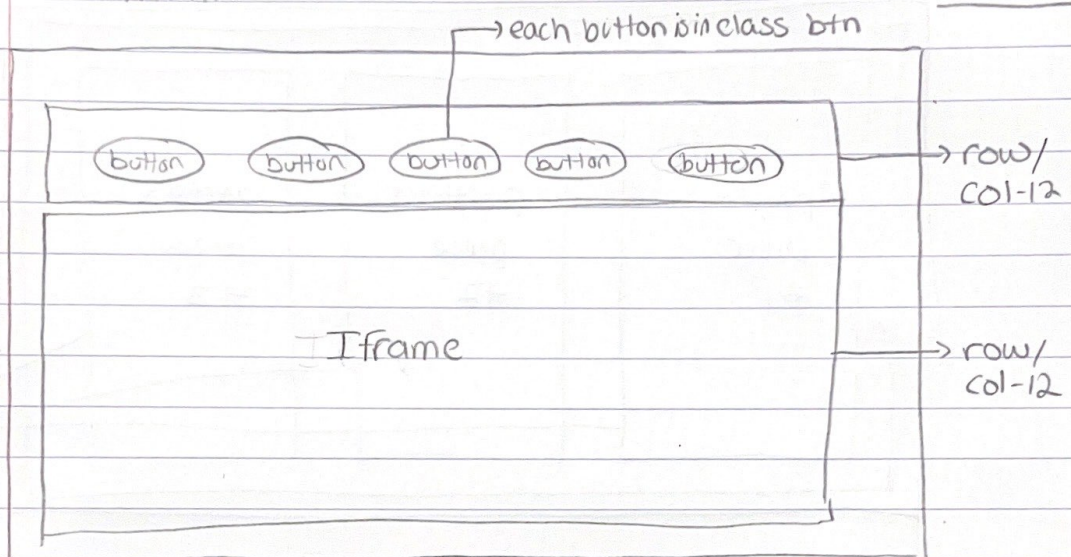 each button is in class btn
button button button button button
row/
col-12
Iframe
row/
col-12